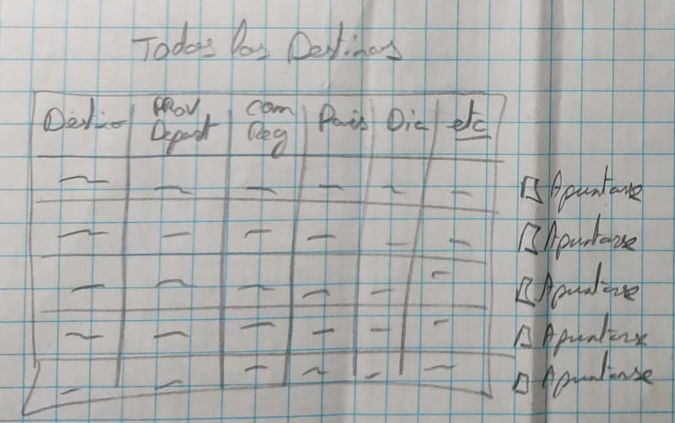 Todos los Destinos
Destino PROV Depart Com Reg Pais Dia etc
Apuntarse
Apuntarse
Apuntarse
Apuntarse
Apuntarse